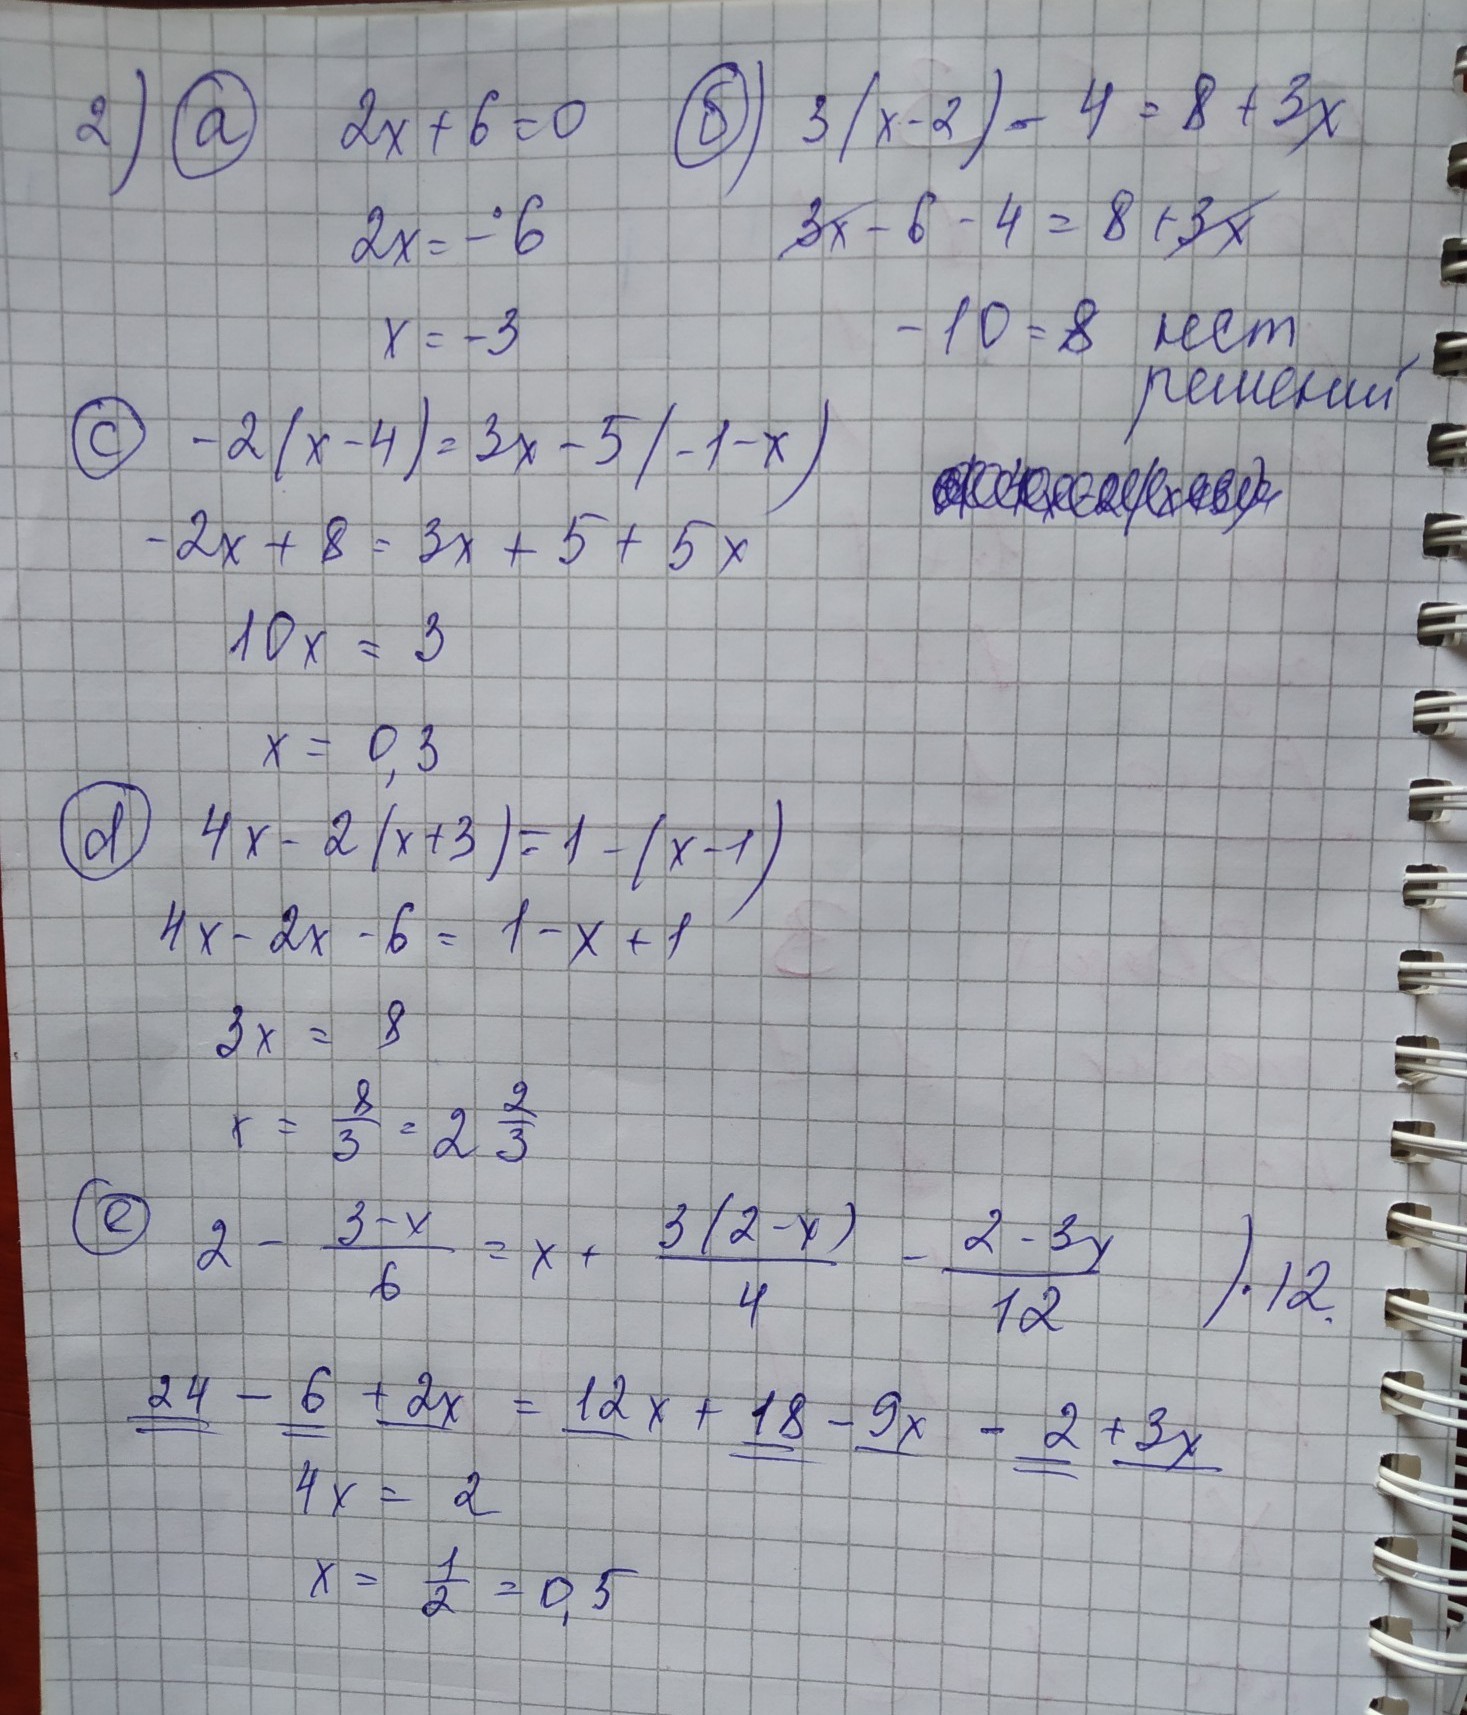 2) а 2x + 6 = 0
2x = -6
x = -3
б) 3(x-2) - 4 = 8 + 3x
3x - 6 - 4 = 8 + 3x
-10 = 8 нет
решений
c -2(x-4) = 3x - 5(-1-x)
-2x + 8 = 3x + 5 + 5x
10x = 3
x = 0,3
d 4x - 2(x+3) = 1 - (x-1)
4x - 2x - 6 = 1 - x + 1
3x = 8
x = 8/3 = 2 2/3
e 2 - (3-x)/6 = x + 3(2-x)/4 - (2-3x)/12 ) · 12.
24 - 6 + 2x = 12x + 18 - 9x - 2 + 3x
4x = 2
x = 1/2 = 0,5